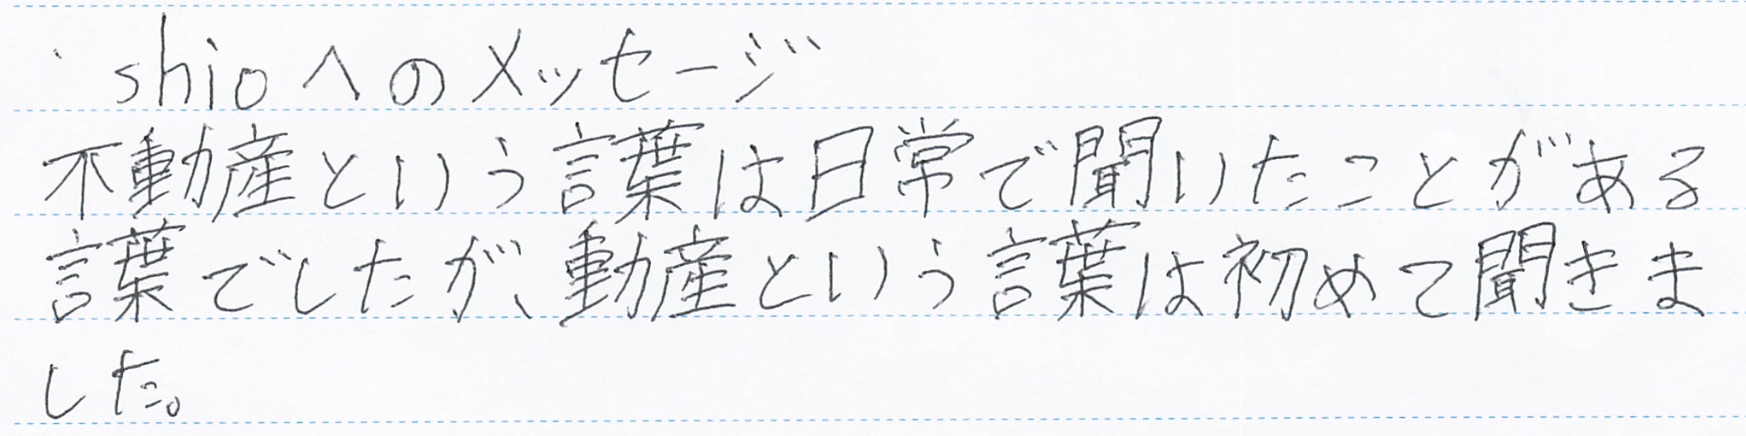 ・shioへのメッセージ
不動産という言葉は日常で聞いたことがある
言葉でしたが、動産という言葉は初めて聞きま
した。